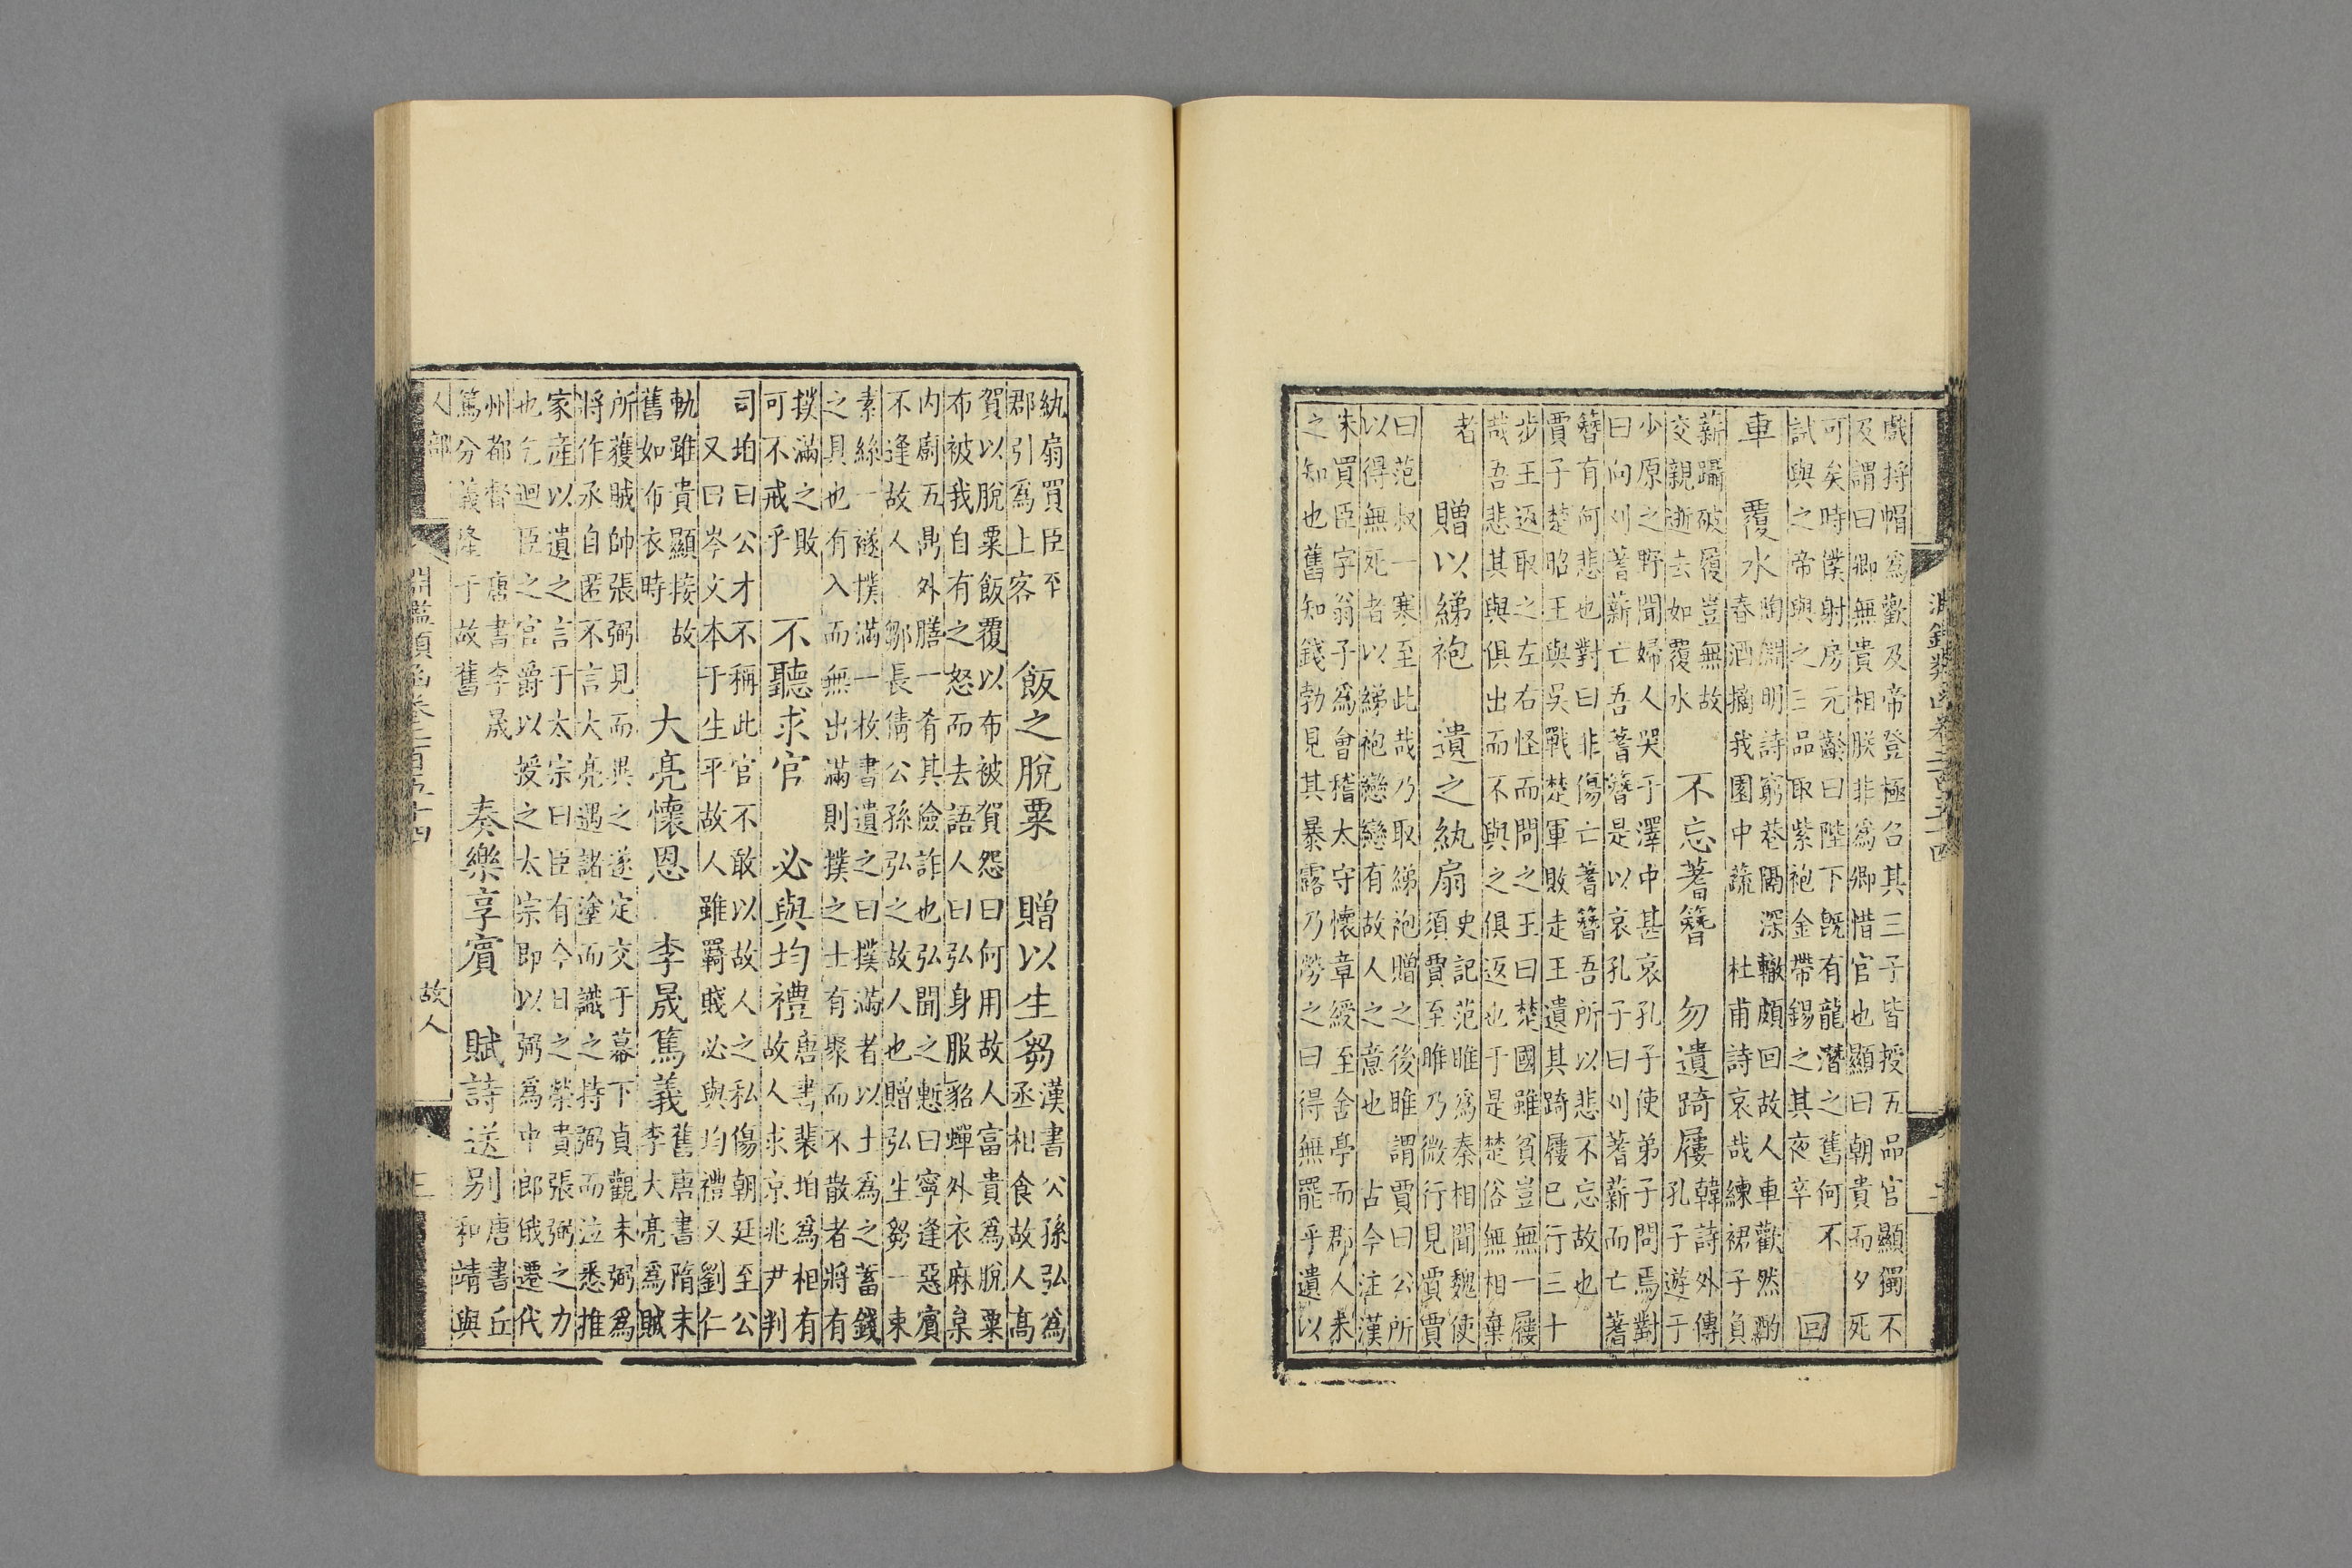 戲捋帽爲歡及帝登極召其三子皆授五品官顯獨不
及謂曰卿無貴相朕非爲卿惜官也顯曰朝貴而夕死
可矣時僕射房元齡曰陛下既有龍潛之舊何不
試與之帝與之三品取紫袍金帶錫之其夜卒
回
車
覆水
陶淵明詩窮巷隔深轍頗回故人車歡然酌
春酒摘我園中蔬
杜甫詩哀哉練裙子負
薪躡破履豈無故
交親逝去如覆水
不忘蓍簪
勿遺踦屨
韓詩外傳
孔子遊于
少原之野聞婦人哭于澤中甚哀孔子使弟子問焉對
曰向刈蓍薪亡吾蓍簪是以哀孔子曰刈蓍薪而亡蓍
簪有何悲也對曰非傷亡蓍簪吾所以悲不忘故也
賈子楚昭王與吳戰楚軍敗走王遺其踦屨已行三十
步王返取之左右怪而問之王曰楚國雖貧豈無一屨
哉吾悲其與俱出而不與之俱返也于是楚俗無相棄
者
贈以綈袍
遺之紈扇
史記范睢爲秦相聞魏使
須賈至睢乃微行見賈賈
曰范叔一寒至此哉乃取綈袍贈之後睢謂賈曰公所
以得無死者以綈袍戀戀有故人之意也
古今注漢
朱買臣字翁子爲會稽太守懷章綬至舍亭而郡人未
之知也舊知錢勃見其暴露乃勞之曰得無罷乎遺以
紈扇買臣至
郡引爲上客
飯之脫粟
贈以生芻
漢書公孫弘爲
丞相食故人高
賀以脫粟飯覆以布被賀怨曰何用故人富貴爲脫粟
布被我自有之怒而去語人曰弘身服貂蟬外衣麻枲
内廚五鼎外膳一肴其險詐也弘聞之慙曰寧逢惡賓
不逢故人
鄒長倩公孫弘之故人也贈弘生芻一束
素絲一襚撲滿一枚書遺之曰撲滿者以土爲之蓄錢
之具也有入而無出滿則撲之士有聚而不散者將有
撲滿之敗
可不戒乎
不聽求官
必與均禮
唐書裴垍爲相有
故人求京兆尹判
司垍曰公才不稱此官不敢以故人之私傷朝廷至公
又曰岑文本于生平故人雖羇賤必與均禮又劉仁
軌雖貴顯接故
舊如布衣時
大亮懷恩
李晟篤義
舊唐書隋末
李大亮爲賊
所獲賊帥張弼見而異之遂定交于幕下貞觀末弼爲
將作丞自匿不言大亮遇諸塗而識之持弼而泣悉推
家産以遺之言于太宗曰臣有今日之榮貴張弼之力
也乞迴臣之官爵以授之太宗即以弼爲中郎俄遷代
州都督
唐書李晟
篤分義隆于故舊
奏樂享賓
賦詩送别
唐書丘
和靖與
人部
淵鑑類函卷二百五十四
故人
三